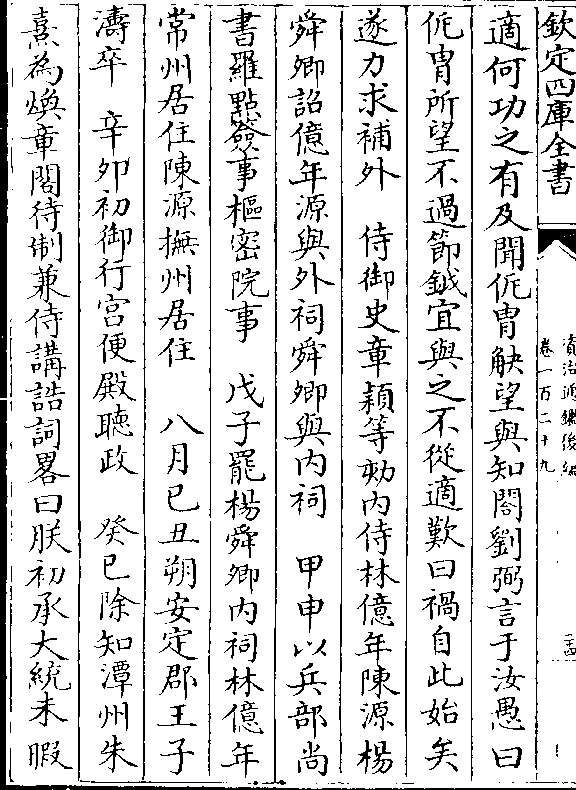 欽定四庫全書
資治通鑑後編
卷一百二十九
二四
適何功之有及聞侂胄觖望與知閤劉弼言于汝愚曰
侂胄所望不過節鉞宜與之不從適歎曰禍自此始矣
遂力求補外　侍御史章穎等劾内侍林億年陳源楊
舜卿詔億年源與外祠舜卿與内祠　甲申以兵部尚
書羅點簽事樞密院事　戊子罷楊舜卿内祠林億年
常州居住陳源撫州居住　八月己丑朔安定郡王子
濤卒　辛卯初御行宫便殿聽政　癸巳除知潭州朱
熹為煥章閣待制兼侍講誥詞畧曰朕初承大統未暇